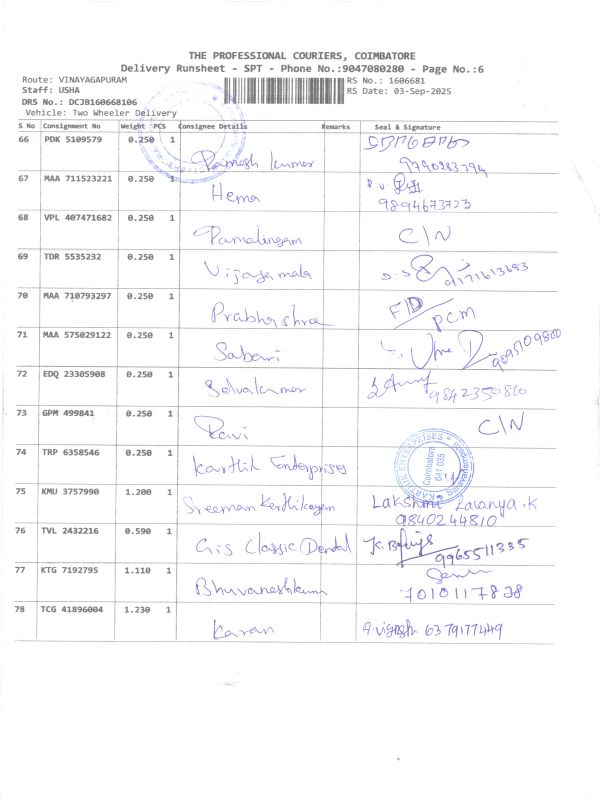 THE PROFESSIONAL COURIERS, COIMBATORE
Delivery Runsheet - SPT - Phone No.:9047080280 - Page No.:6
Route: VINAYAGAPURAM
RS No.: 1606681
Staff: USHA
RS Date: 03-Sep-2025
DRS No.: DCJB160668106
Vehicle: Two Wheeler Delivery
S No Consignment No Weight PCS Consignee Details Remarks Seal & Signature
66 PDK 5109579 0.250 1 Ramesh kumar 9790283794
67 MAA 711523221 0.250 1 Hema R.V. 9894673723
68 VPL 407471682 0.250 1 Ramalingam C/N
69 TDR 5535232 0.250 1 Vijayamala
70 MAA 710793297 0.250 1 Prabhashree FID/PCM
71 MAA 575029122 0.250 1 Sabari
72 EDQ 23305908 0.250 1 Selvakumar
73 GPM 499841 0.250 1 Ravi C/N
74 TRP 6358546 0.250 1 Karthik Enterprises
KARTHIK ENTERPRISES
Coimbatore
641 035
75 KMU 3757990 1.200 1 Sreeman Karthikeyan Lakshmi Lavanya.K
9840244810
76 TVL 2432216 0.590 1 Gis Classic Dental 9965511335
77 KTG 7192795 1.110 1 Bhuvaneshkumar 7010117838
78 TCG 41896004 1.230 1 Karan A.vignesh 6379177449